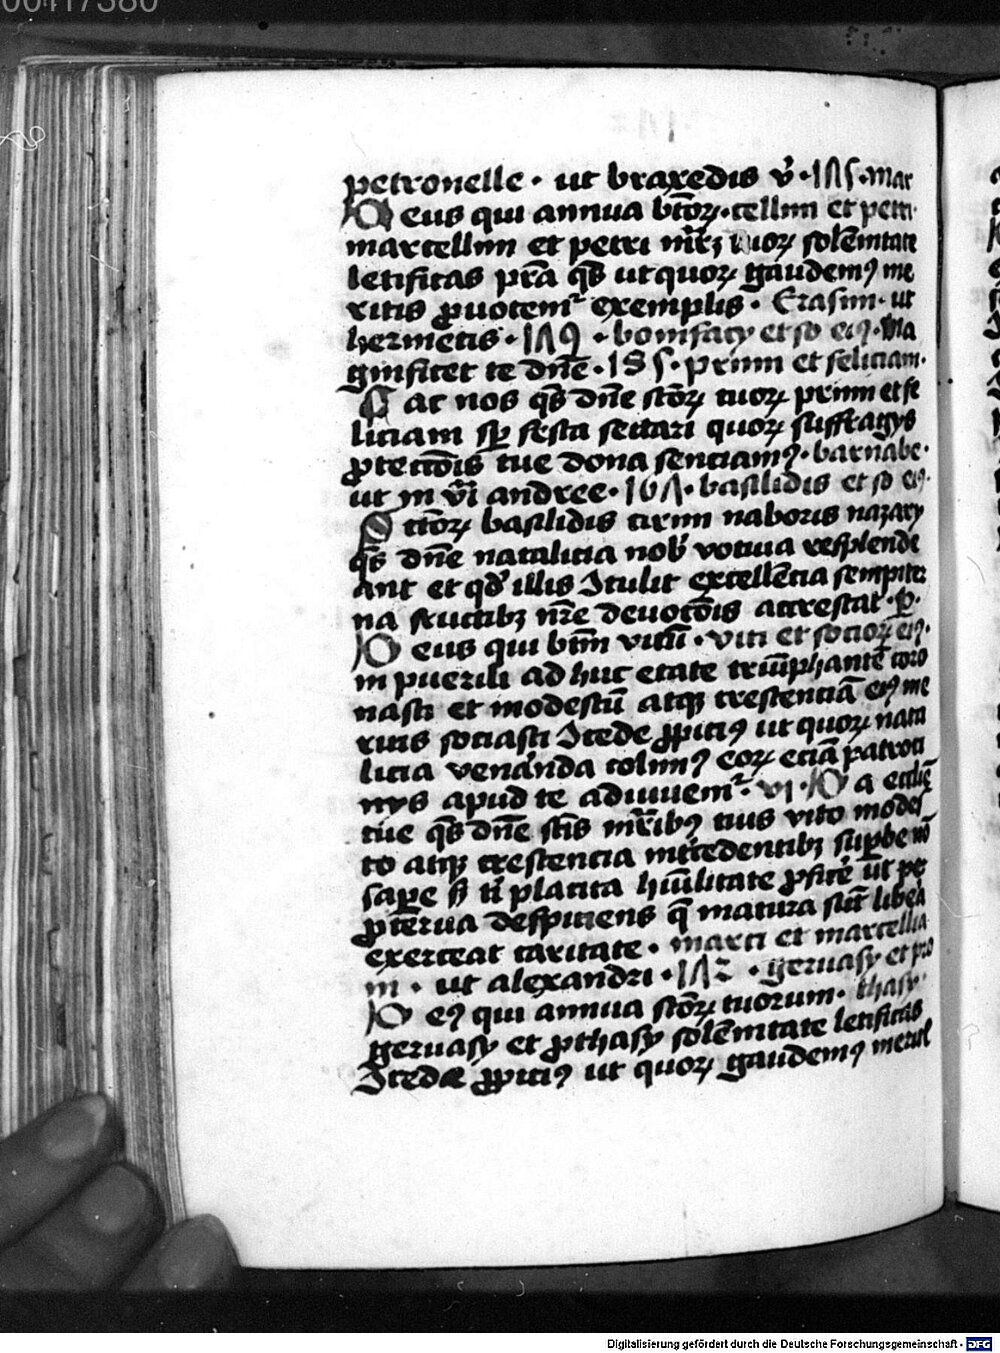 petronelle · ut braxedis v̄ · 1Λ5 · mar
Deus qui annua btōꝝ · cellini et petri ·
marcellini et petri mr̄ꝫ tuoꝝ solēmitate
letificas prā qs̄ ut quoꝝ gaudemꝰ me
ritis ꝓuocemᷣ exemplis · Erasmi · ut
hermetis · 1Λ9 · bonifacy et so eiꝰ · Ma
gnificet te dn̄e · 185 · primi et feliciani ·
Fac nos qs̄ dn̄e stōꝝ tuoꝝ primi et fe
liciani sꝑ festa sectari quoꝝ suffragys
ꝓtectōis tue dona senciamꝰ · barnabe ·
ut in vi andree · 16Λ · basilidis et so eiꝰ ·
Sctōꝝ basilidis cirini naboris nazary
qs̄ dn̄e natalicia nob̄ votiua resplende
ant et qd̄ illis ɔtulit excellēcia sempiter
na fructibꝫ nr̄e deuocōis accrescat · p ·
Deus qui btm̄ vitū · viti et socioꝝ eiꝰ ·
in puerili ad huc etate triūphantē coro
nasti et modestū atqꝫ crescenciā eiꝰ me
ritis sociasti ɔcede ꝓpiciꝰ ut quoꝝ nata
licia veneranda colimꝰ eoꝝ eciā patroci
nys apud te adiuuemᷣ · vi · Da ecclīe
tue qs̄ dn̄e sc̄is mr̄ibꝰ tuis vito modes
to atqꝫ crescencia int̄cedentibꝫ supbe nō
sape sꝫ ti placita hūilitate ꝓficē ut per
ꝓterua despiciens q̄ matura sūt libera
exerceat caritate · marci et marcellia
ni · ut alexandri · 1Λ2 · geruasy et pro
Deꝰ qui annua stōꝝ tuorum · thasy ·
geruasy et ꝓthasy solēmitate letificas
ɔcede ꝓpiciꝰ ut quoꝝ gaudemꝰ
Digitalisierung gefördert durch die Deutsche Forschungsgemeinschaft - DFG